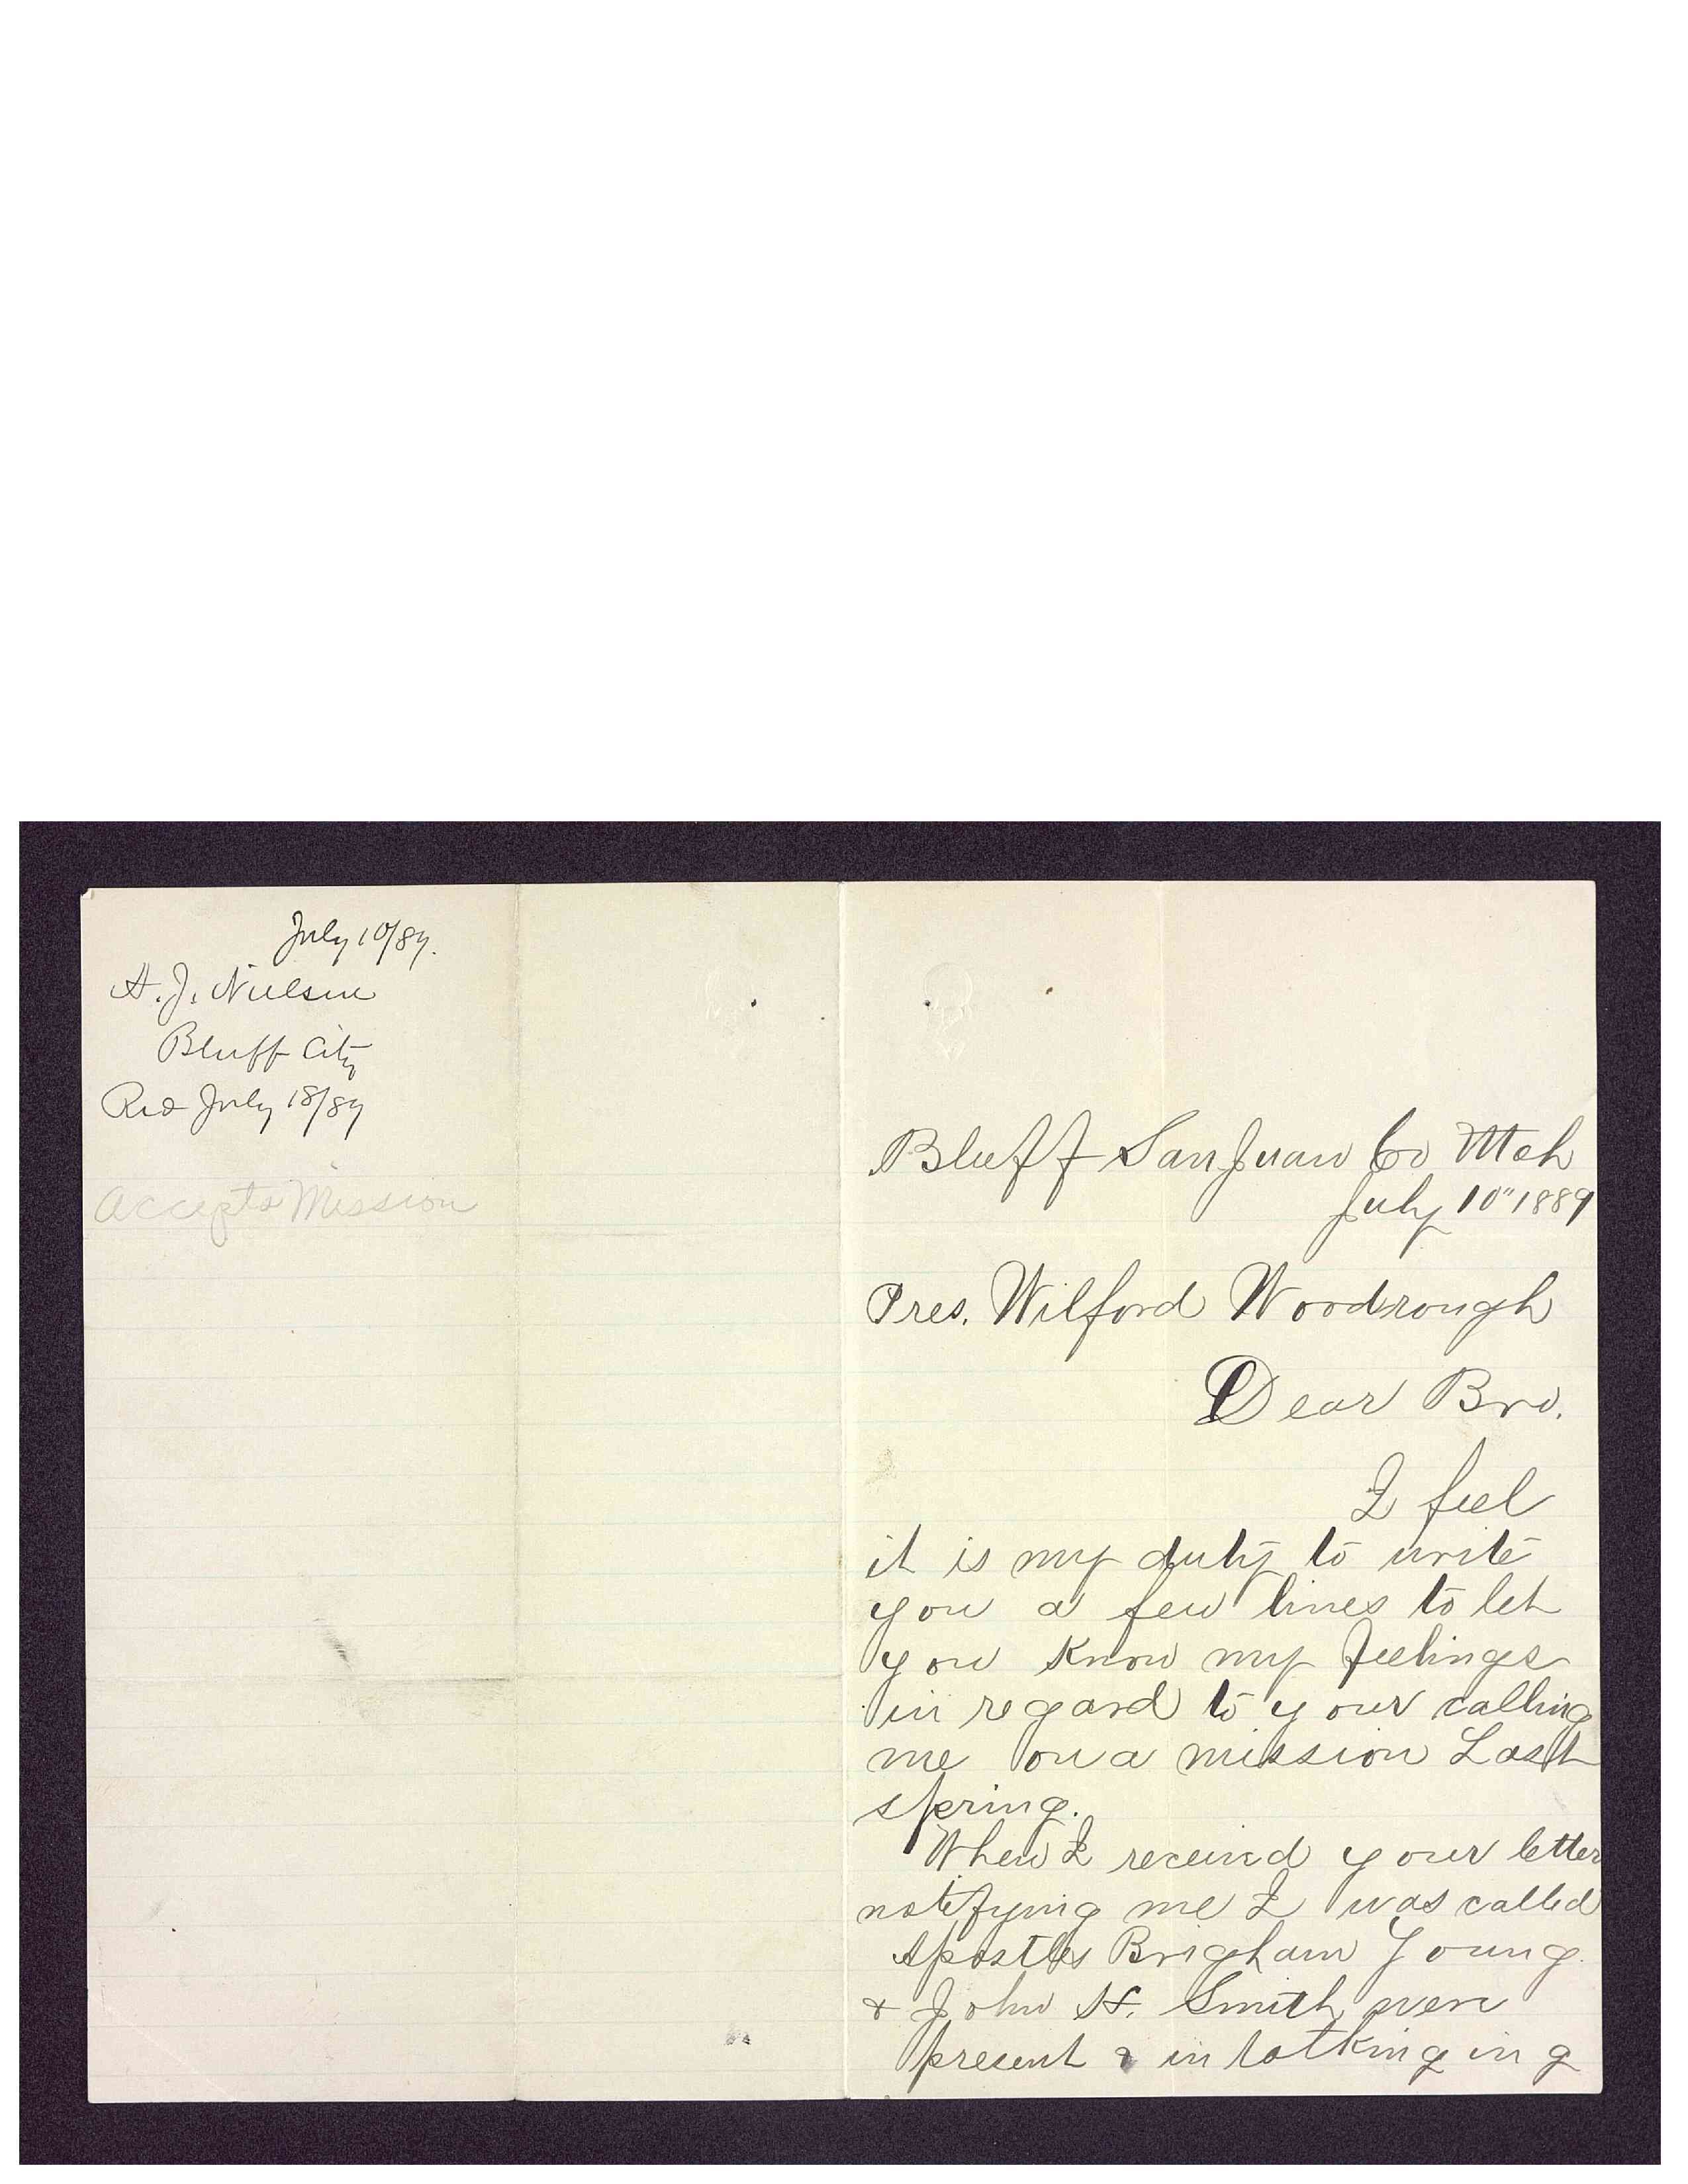 July 10/89.
H. J. Nielson
Bluff City
Recd July 18/89
Accepts Mission
Bluff San Juan Co Utah
July 10" 1889
Pres. Wilford Woodrough
Dear Bro.
I feel
it is my duty to write
you a few lines to let
you know my feelings
in regard to your calling
me on a mission Last
spring.
When I received your letter
notifying me I was called
Apostles Brigham Young
& John H. Smith were
present & in talking in g